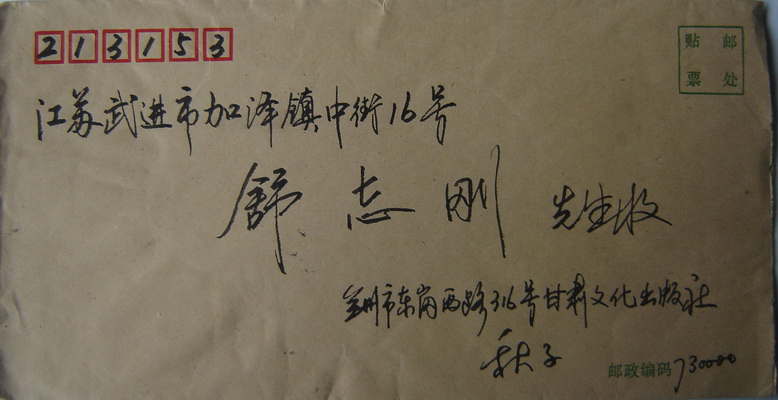 213153
贴 邮
票 处
江苏武进市加泽镇中街16号
舒志刚 先生收
兰州市东岗西路316号甘肃文化出版社
秋子
邮政编码 730000